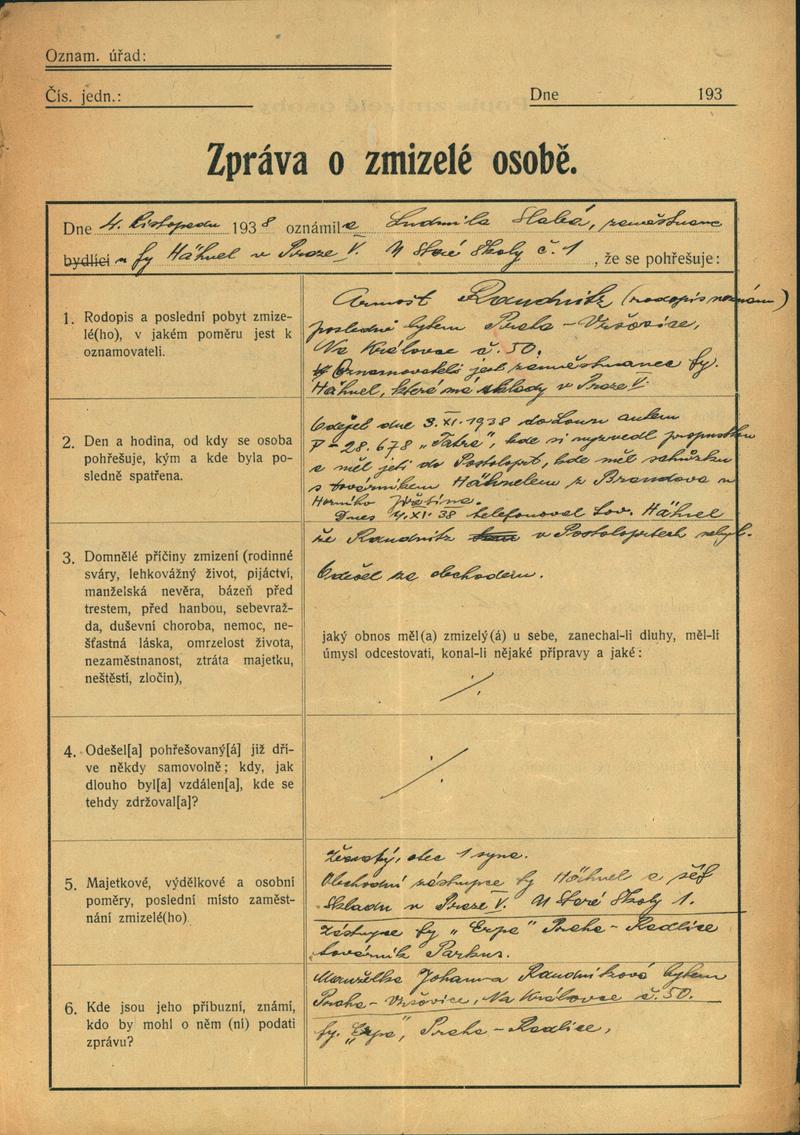 Oznam. úřad:
Čís. jedn.:
Dne 193
Zpráva o zmizelé osobě.
Dne 4. listopadu 1938 oznámila Ludmila Slabá, zaměstnanc
bydlící u fy Hähnel v Praze V. U Staré Školy č. 1, že se pohřešuje:
1. Rodopis a poslední pobyt zmize-
lé(ho), v jakém poměru jest k
oznamovateli.
Arnošt Raudnitz (rodopis neznám)
posledně bytem Praha-Vršovice,
Na Královce č. 50.
Oznamovatelé jest zaměstnanec fy.
Hähnel, která má sklady v Praze V.
2. Den a hodina, od kdy se osoba
pohřešuje, kým a kde byla po-
sledně spatřena.
Odejel dne 3. XI. 1938 do Loun autem
P-28.678 „Tatra", kde si vyzvedl propustku
a měl jeti do Postoloprt, kde měl schůzku
s továrníkem Hähnelem z Brandova u
Horního Jiřetína.
Dnes 4. XI. 38 telefonoval tov. Hähnel
že Raudnitz v Postoloprtech nebyl.
3. Domnělé příčiny zmizení (rodinné
sváry, lehkovážný život, pijáctví,
manželská nevěra, bázeň před
trestem, před hanbou, sebevraž-
da, duševní choroba, nemoc, ne-
šťastná láska, omrzelost života,
nezaměstnanost, ztráta majetku,
neštěstí, zločin),
Odešel za obchodem.
jaký obnos měl(a) zmizelý(á) u sebe, zanechal-li dluhy, měl-li
úmysl odcestovati, konal-li nějaké přípravy a jaké:
·/.
4. Odešel[a] pohřešovaný[á] již dří-
ve někdy samovolně; kdy, jak
dlouho byl[a] vzdálen[a], kde se
tehdy zdržoval[a]?
·/.
5. Majetkové, výdělkové a osobní
poměry, poslední místo zaměst-
nání zmizelé(ho)
ženatý, otec 1 syna.
Obchodní zástupce fy Hähnel a šéf
skladu v Praze V. U Staré Školy 1.
Zástupce fy „Erpa" Praha-Radlice
továrník Parkus.
6. Kde jsou jeho příbuzní, známí,
kdo by mohl o něm (ní) podati
zprávu?
Manželka Johanna Raudnitzová bytem
Praha-Vršovice, Na Královce č. 50.
fy. „Erpa", Praha-Radlice,